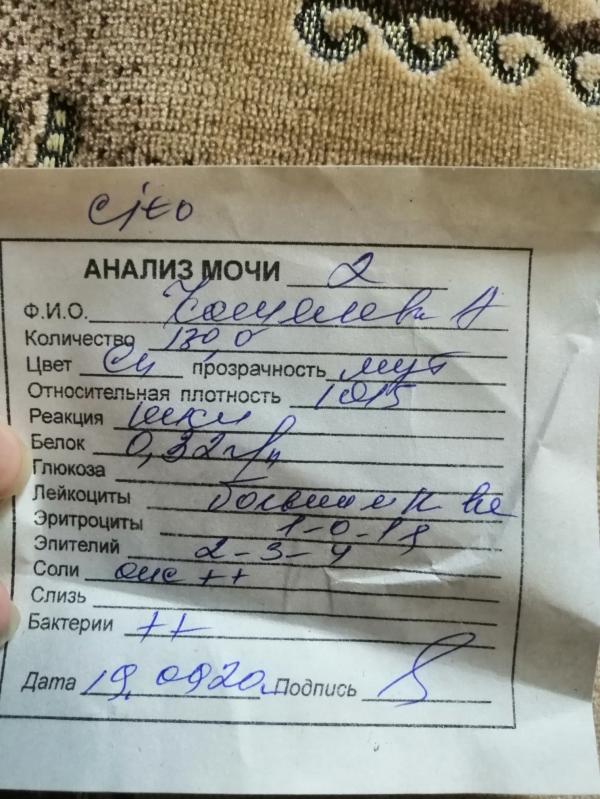 cito
АНАЛИЗ МОЧИ 2
Ф.И.О. А
Количество 130,0
Цвет с/ж прозрачность мут
Относительная плотность 1015
Реакция
Белок 0,32 г/л
Глюкоза
Лейкоциты
Эритроциты 1-0-1
Эпителий 2-3-4
Соли окс ++
Слизь
Бактерии ++
Дата 19.09.20г. Подпись